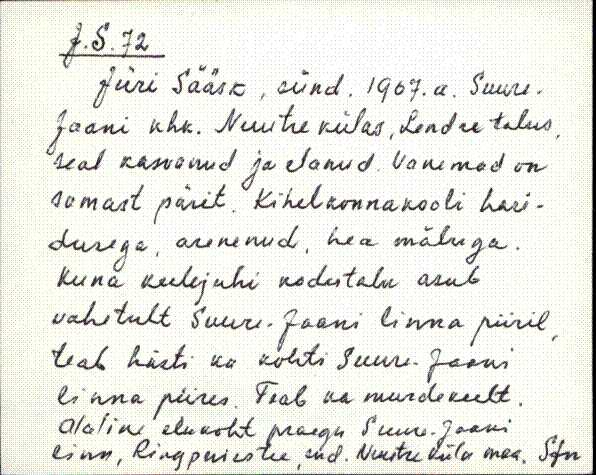 J.S.72
Jüri Sääsk, sünd. 1907.a. Suure-
Jaani khk. Nuutre külas, Lendre talus,
seal kasvanud ja elanud. Vanemad on
samast pärit. Kihelkonnakooli hari-
dusega, arenenud, hea mäluga.
Kuna keelejuhi kodutalu asub
vahetult Suure-Jaani linna piiril,
teab hästi ka kohti Suure-Jaani
linna piires. Teab ka murdekeelt.
Alaline elukoht praegu Suure-Jaani
linn, end. Nuutre küla maa.